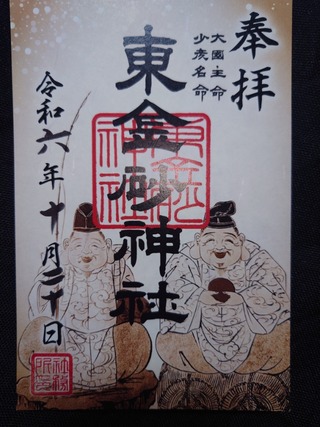 奉拝
大國主命
少彦名命
東金砂神社
令和六年十月二十日